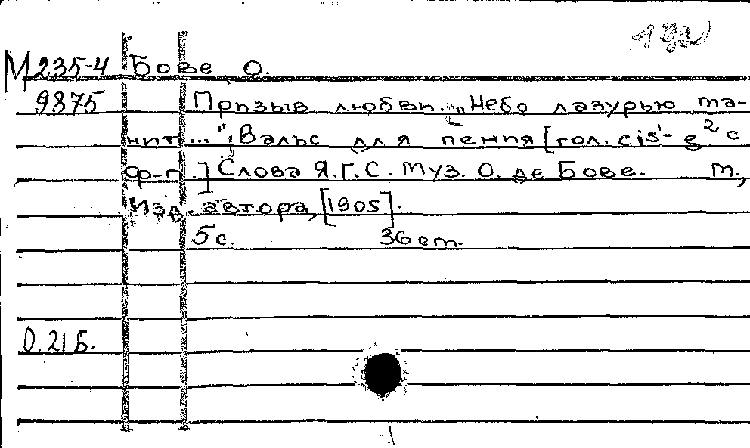 М235-4 Бове О.
9875 Призыв любви. „Небо лазурью ма-
нит..." Вальс для пения [гол. cis'- g² с
ф-п.] Слова Я.Г.С. Муз. О. де Бове. М.,
Изд. автора, [1905].
5с. 36 ст.
О.21Б.